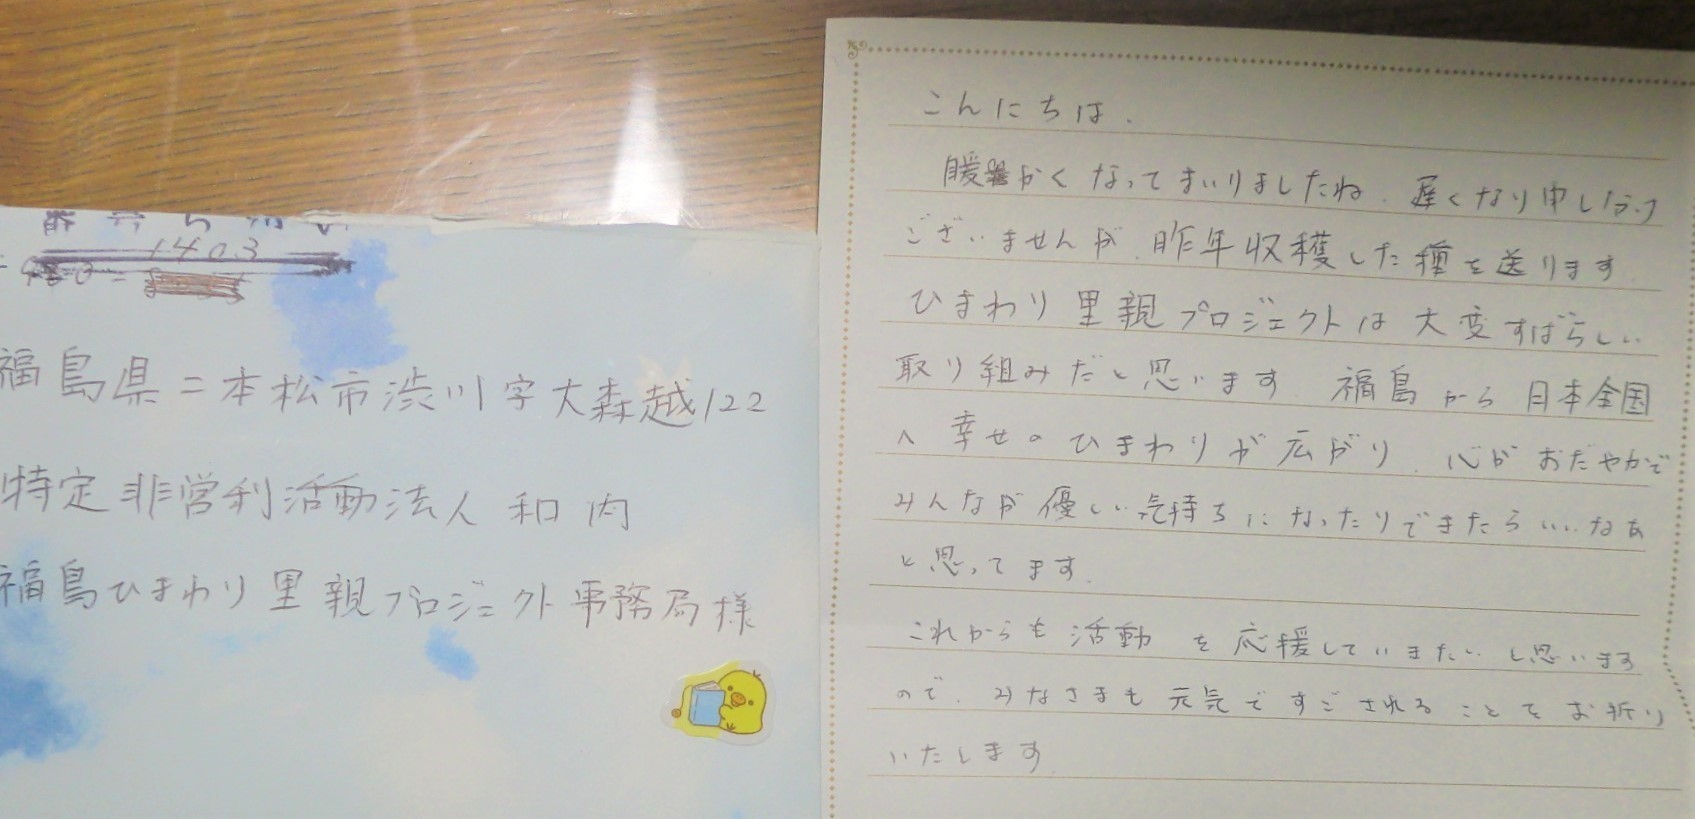 1403
福島県二本松市渋川字大森越122
特定非営利活動法人 和内
福島ひまわり里親プロジェクト事務局様
こんにちは.
暖かくなってまいりましたね.遅くなり申し訳
ございませんが、昨年収穫した種を送ります.
ひまわり里親プロジェクトは大変すばらしい
取り組みだと思います.福島から日本全国
へ幸せのひまわりが広がり、心がおだやかで
みんなが優しい気持ちになったりできたらいいなぁ
と思ってます.
これからも活動を応援していきたいと思います
ので、みなさまも元気ですごされることをお祈り
いたします.